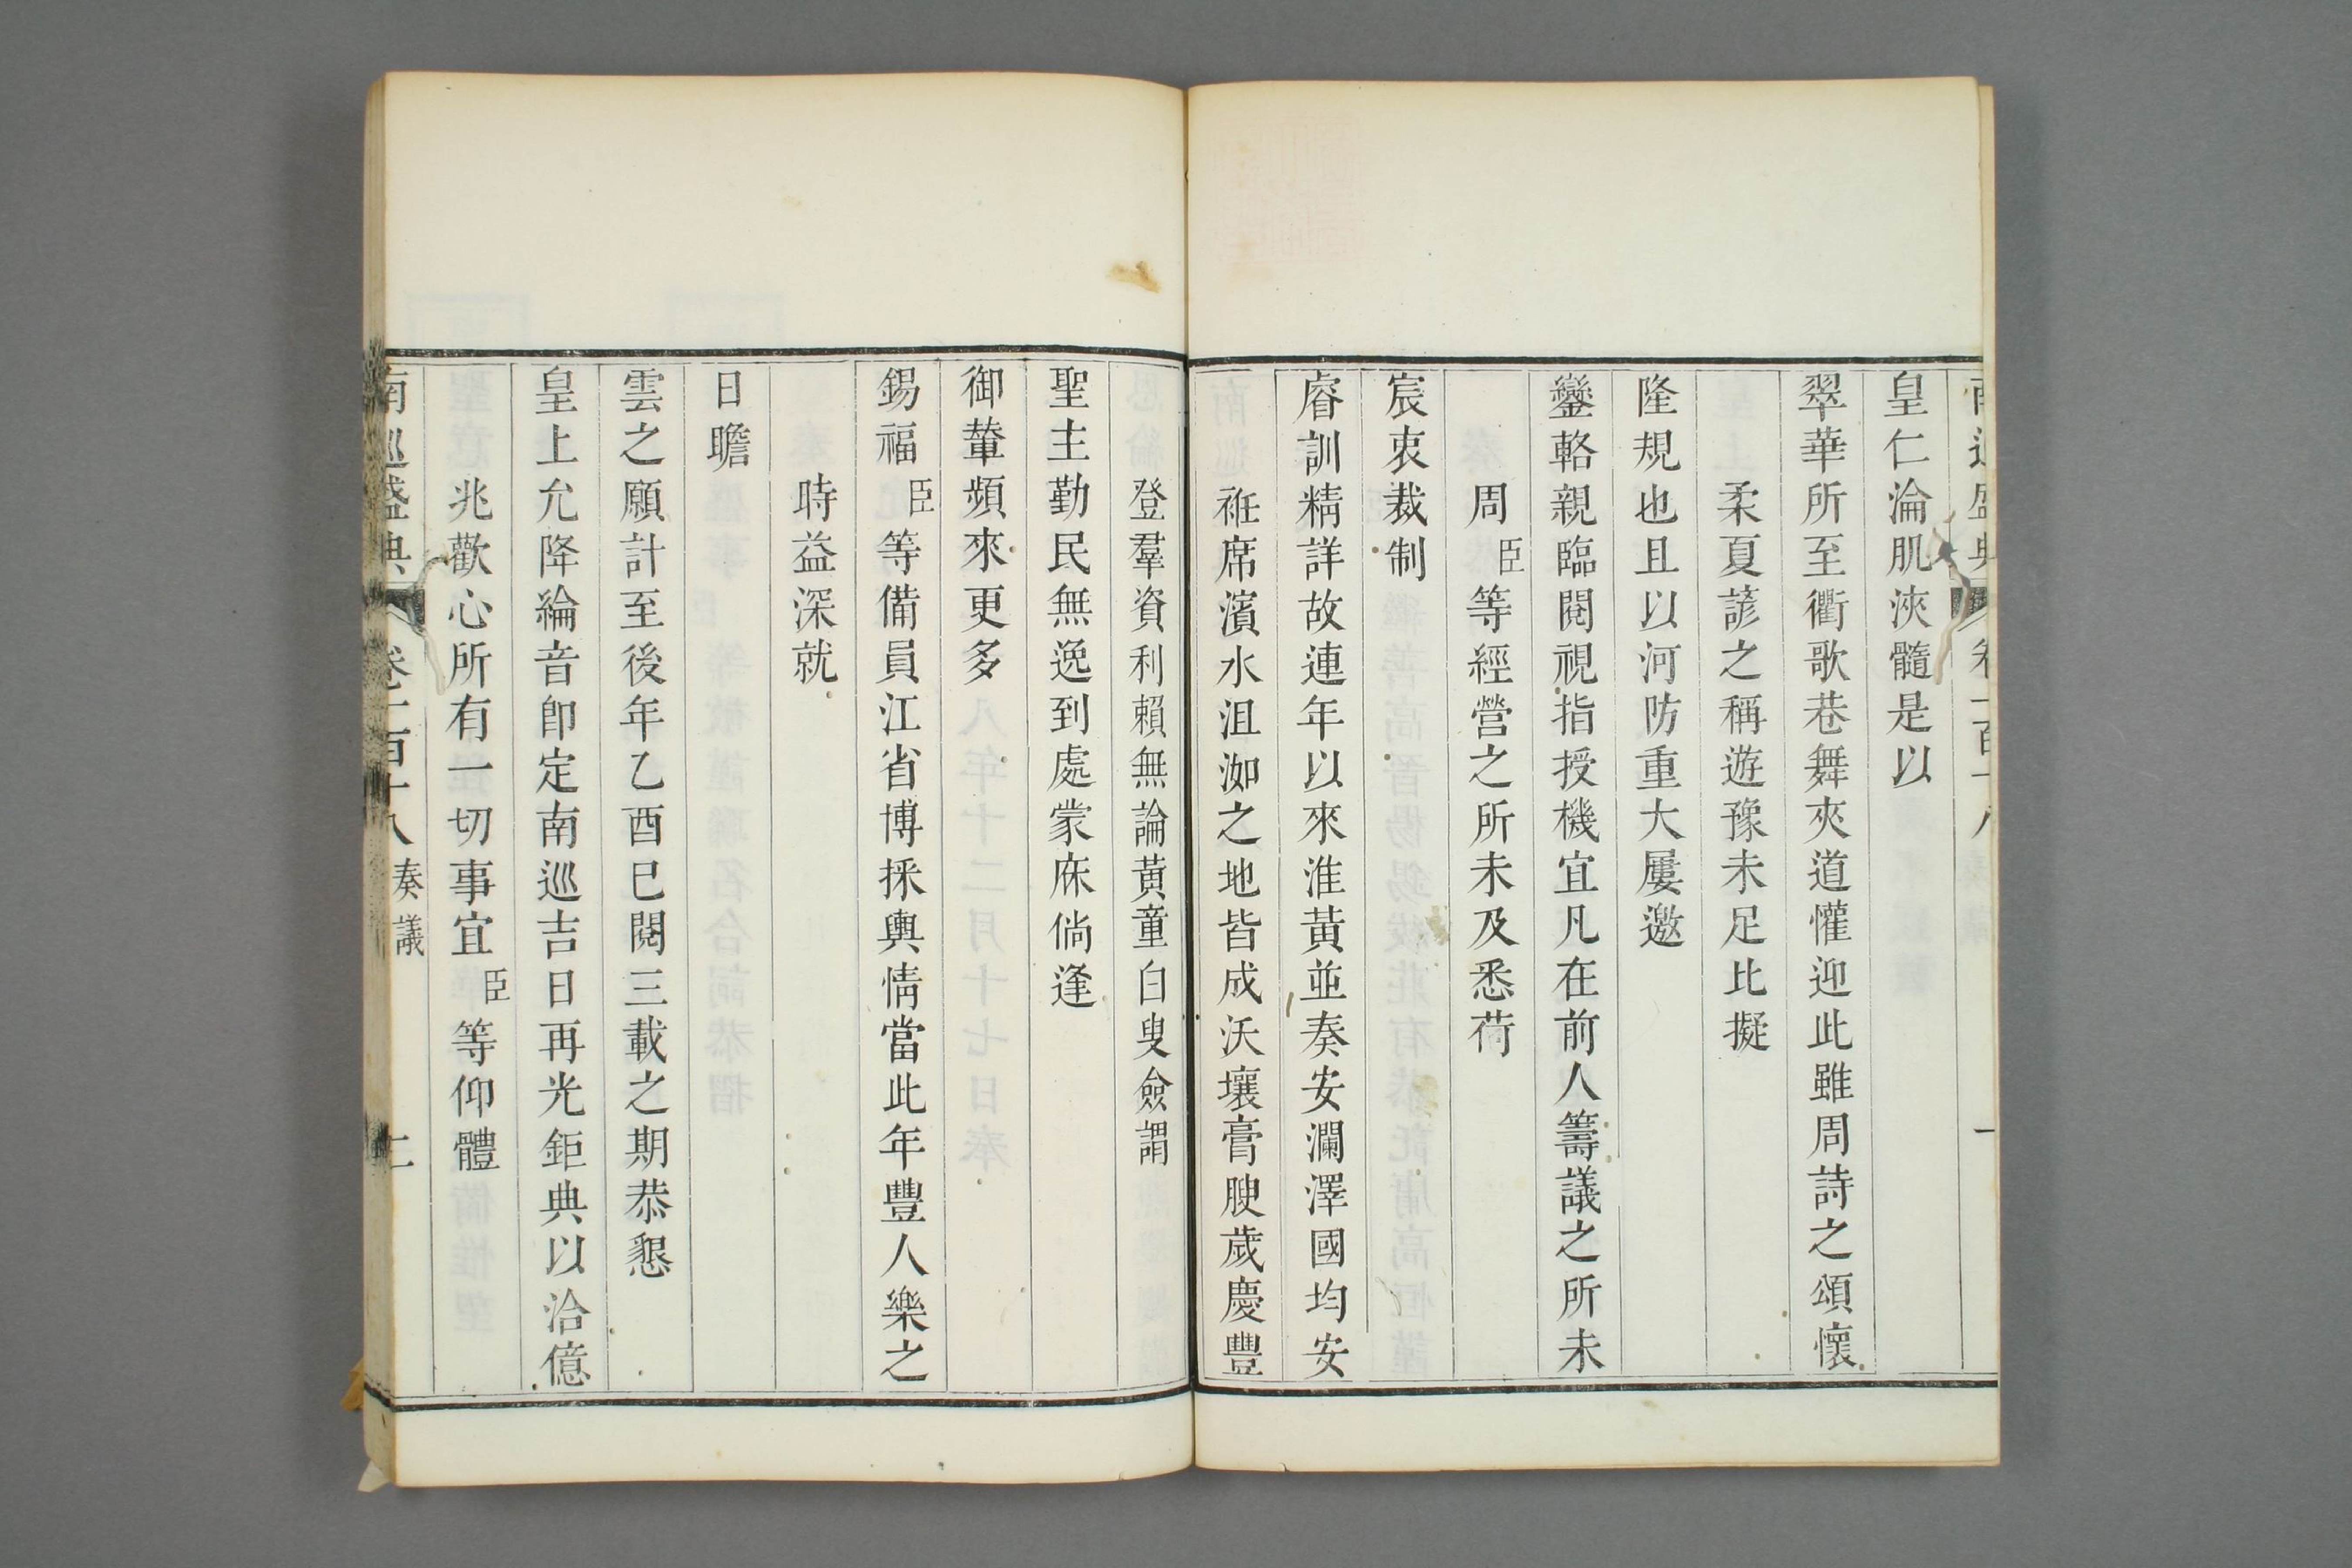 南巡盛典 卷一百十八 奏議 一
皇仁淪肌浹髓是以
翠華所至衢歌巷舞夾道懽迎此雖周詩之頌懷
柔夏諺之稱遊豫未足比擬
隆規也且以河防重大屢邀
鑾輅親臨閱視指授機宜凡在前人籌議之所未
周臣等經營之所未及悉荷
宸衷裁制
睿訓精詳故連年以來淮黃並奏安瀾澤國均安
袵席濱水沮洳之地皆成沃壤膏腴歲慶豐
登羣資利賴無論黃童白叟僉謂
聖主勤民無逸到處蒙庥倘逢
御輦頻來更多
錫福臣等備員江省博採輿情當此年豐人樂之
時益深就
日瞻
雲之願計至後年乙酉巳閱三載之期恭懇
皇上允降綸音卽定南巡吉日再光鉅典以洽億
兆歡心所有一切事宜臣等仰體
南巡盛典 卷一百十八 奏議 二